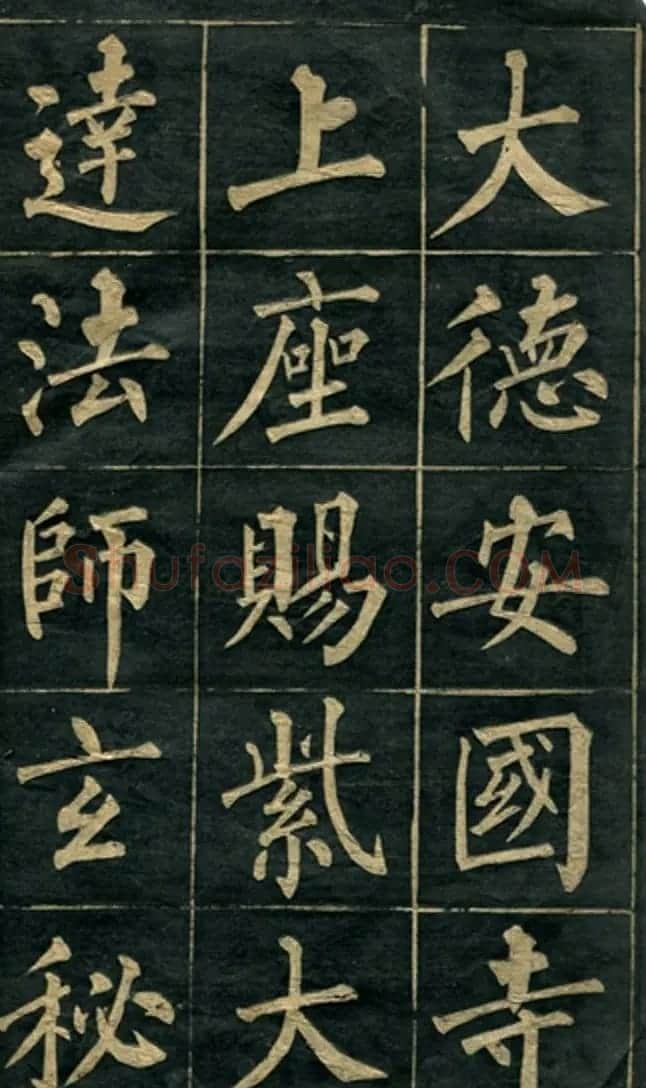 大德安國寺
上座賜紫大
達法師玄秘
Shufaziliao.COM